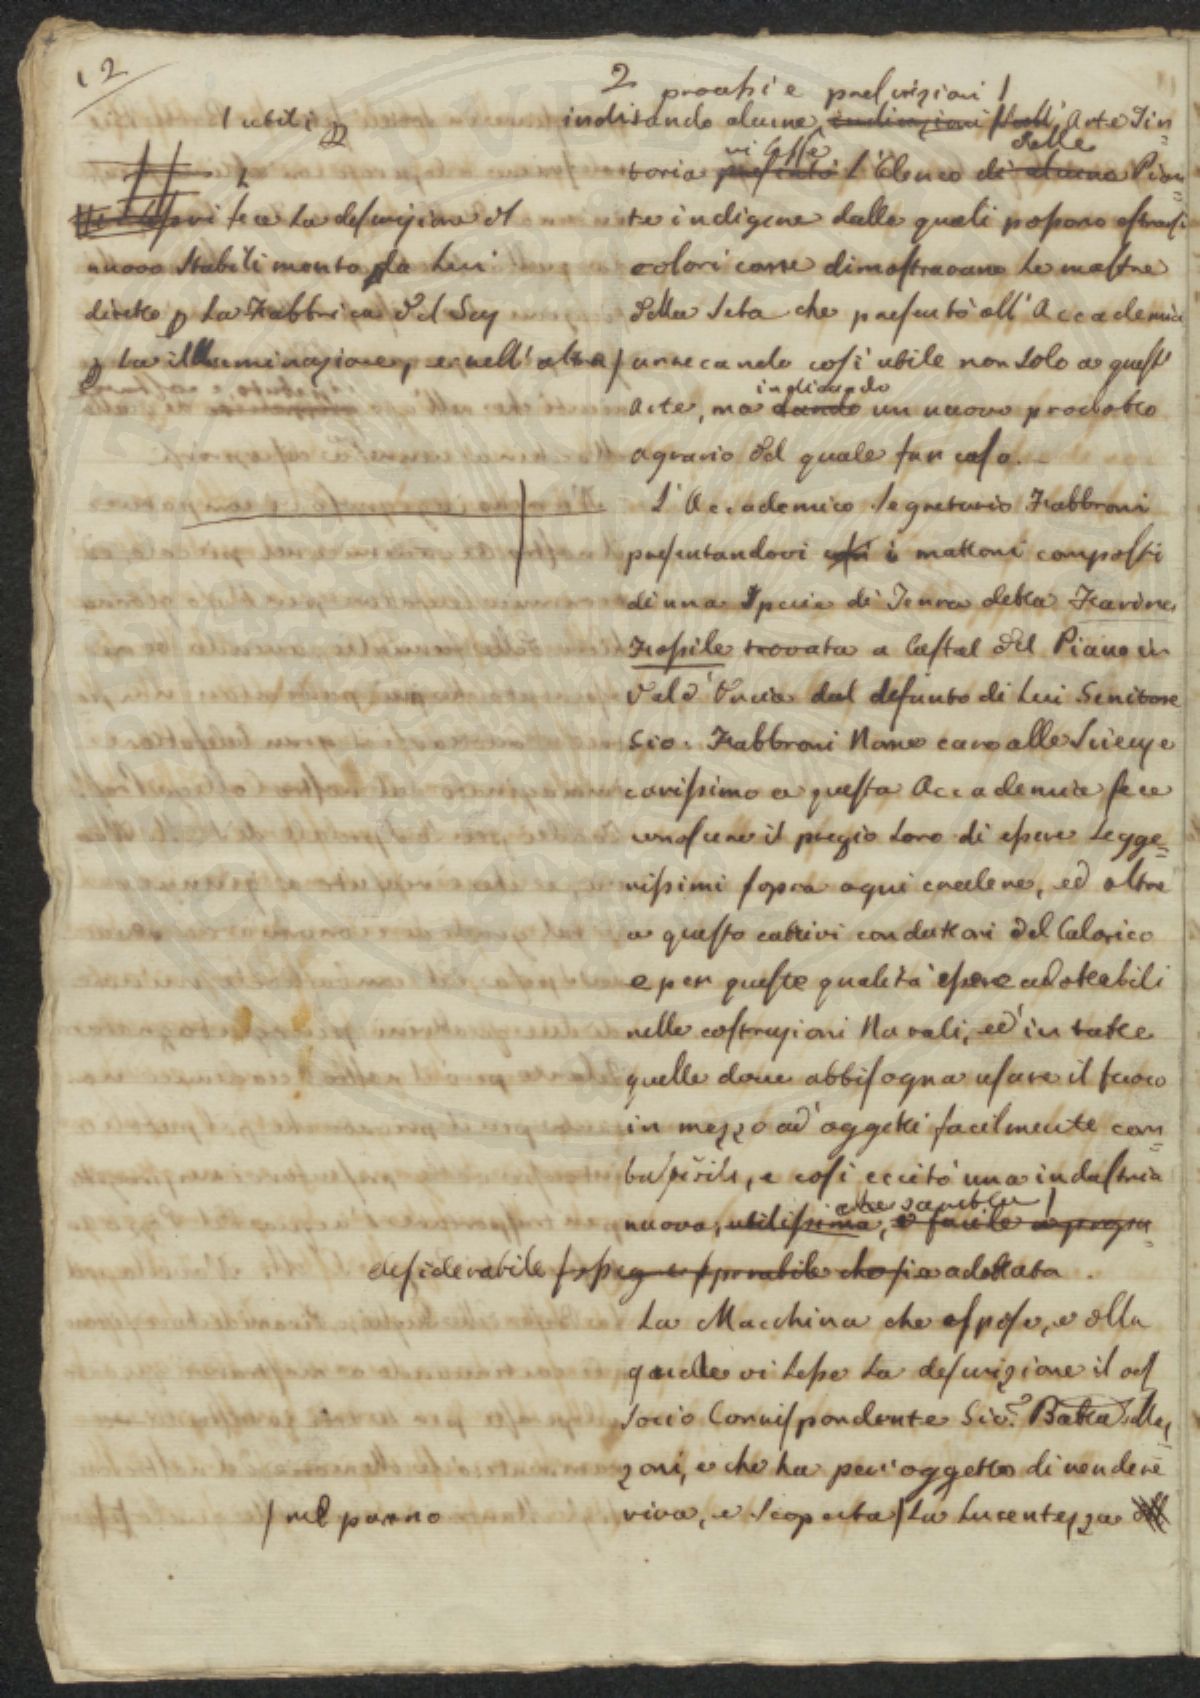 2
2
processi e prescrizioni /
/ utili p
indicando alcune indicazioni Arte Tin=
delle
vi lesse
toria presentò L'Elenco di alcune Pian=
te indigene dalle quali possono estrarsi
colori come dimostravano le mostre
della Seta che presentò all'Accademia
arrecando così utile non solo a quest'
indicando
Arte, ma dando un nuovo prodotto
agrario del quale far caso.
fece la descrizione del
nuovo Stabilimento da Lui
diretto p la Fabbrica del Seg
p la illuminazione, e nell'altra /
L'Accademico Segretario Fabbroni
presentandovi i mattoni composti
di una Specie di Terra detta Farina
Fossile trovata a Castel del Piano in
Val d'Orcia dal defunto di Lui Genitore
Gio. Fabbroni Nome caro alle Scienze
carissimo a questa Accademia fece
conoscere il pregio loro di essere Legge=
rissimi sopra ogni credere, ed oltre
a questo cattivi conduttori del Calorico
e per queste qualità essere adottabili
nelle costruzioni Navali, ed in tutte
quelle dove abbisogna usare il fuoco
in mezzo ad oggetti facilmente com=
bustibili, e così eccitò una industria
che sarebbe /
nuova, utilissima, e facile a propa=
desiderabile fosse e sperabile che sia adottata.
La Macchina che espose, e della
quale vi lesse la descrizione il
Socio Corrispondente Gio. Batta Maz=
zoni, e che ha per oggetto di rendere
viva, e scoperta / La Lucentezza
/ nel panno